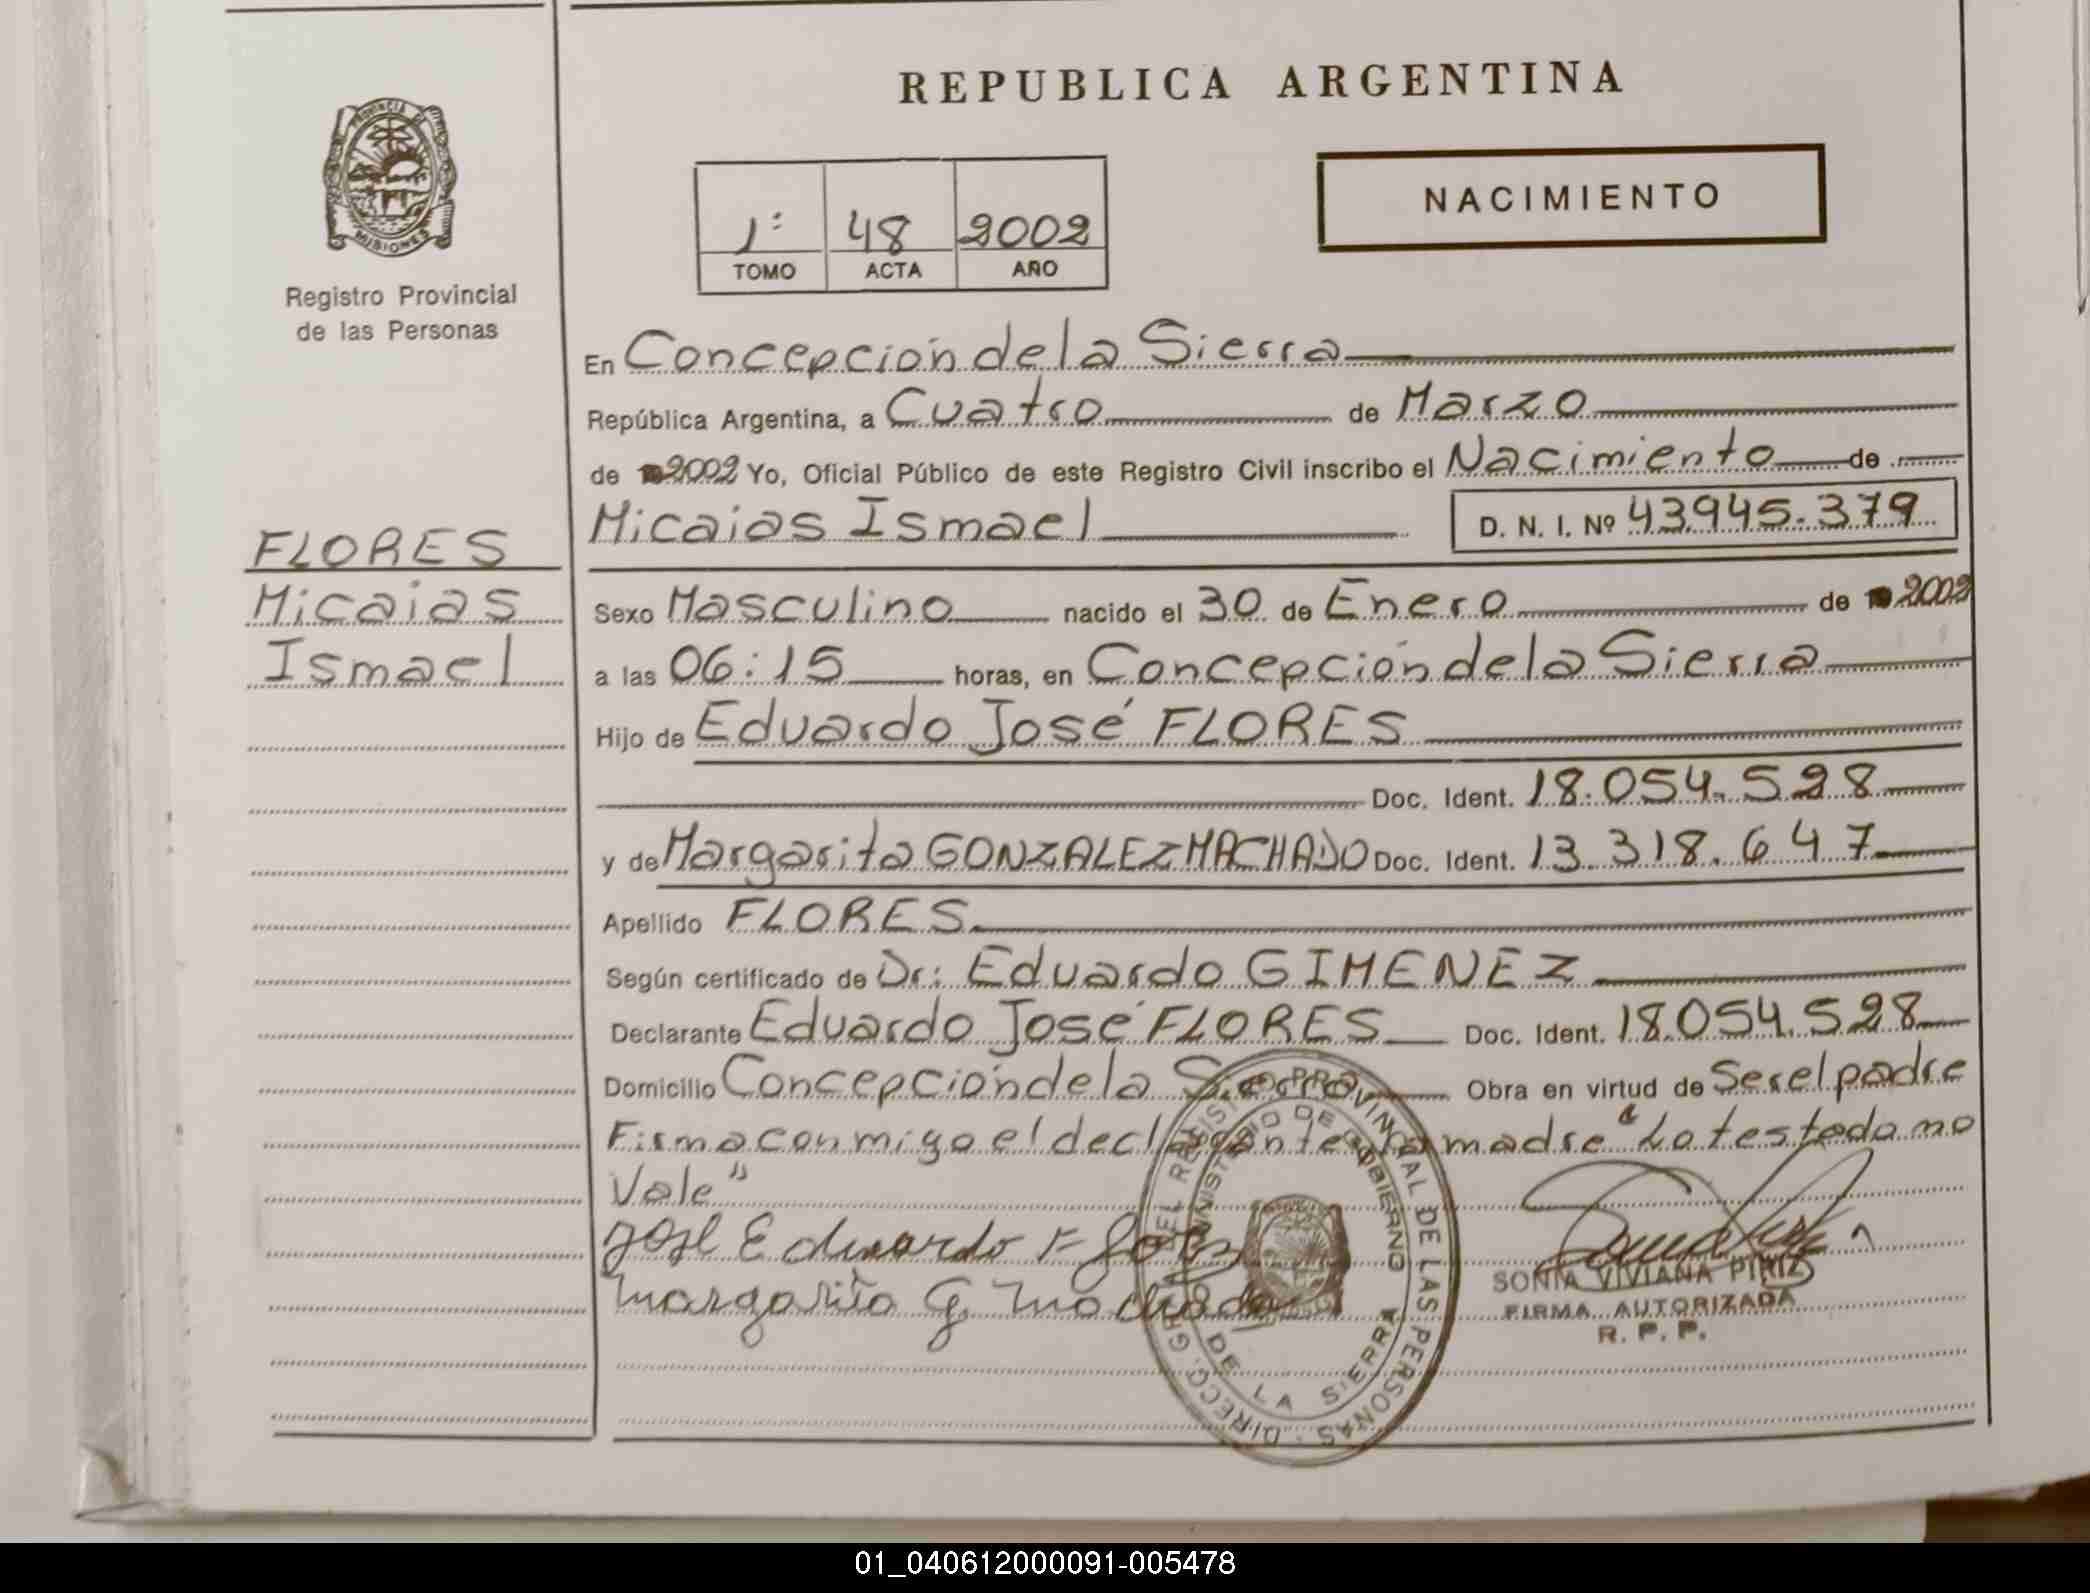 REPUBLICA ARGENTINA
PROVINCIA DE
MISIONES
Registro Provincial
de las Personas
NACIMIENTO
1º 48 2002
TOMO ACTA AÑO
FLORES
Micaias
Ismael
En Concepción de la Sierra
República Argentina, a Cuatro de Marzo
de 2002 Yo, Oficial Público de este Registro Civil inscribo el Nacimiento de
Micaias Ismael D. N. I. Nº 43.945.379
Sexo Masculino nacido el 30 de Enero de 2002
a las 06:15 horas, en Concepción de la Sierra
Hijo de Eduardo José FLORES
Doc. Ident. 18.054.528
y de Margarita GONZALEZ MACHADO Doc. Ident. 13.318.647
Apellido FLORES
Según certificado de Dr: Eduardo GIMENEZ
Declarante Eduardo José FLORES Doc. Ident. 18.054.528
Domicilio Concepción de la Sierra Obra en virtud de Ser el padre
Firma conmigo el declarante la madre "Lo testado no
Vale"
José Eduardo Flores
Margarita G. Machado
SONIA VIVIANA PIRIZ
FIRMA AUTORIZADA
R. P. P.
DIRECC. GRAL. DEL REGISTRO PROVINCIAL DE LAS PERSONAS
MINISTERIO DE GOBIERNO
DE LA SIERRA
01_040612000091-005478